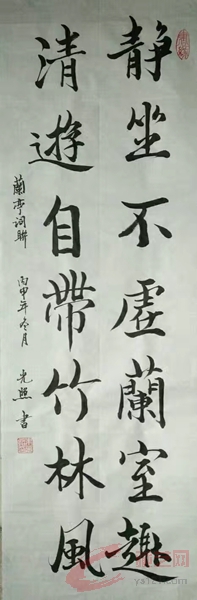 靜坐不虛蘭室趣
清遊自帶竹林風
蘭亭詞聯
丙申年冬月
光照書